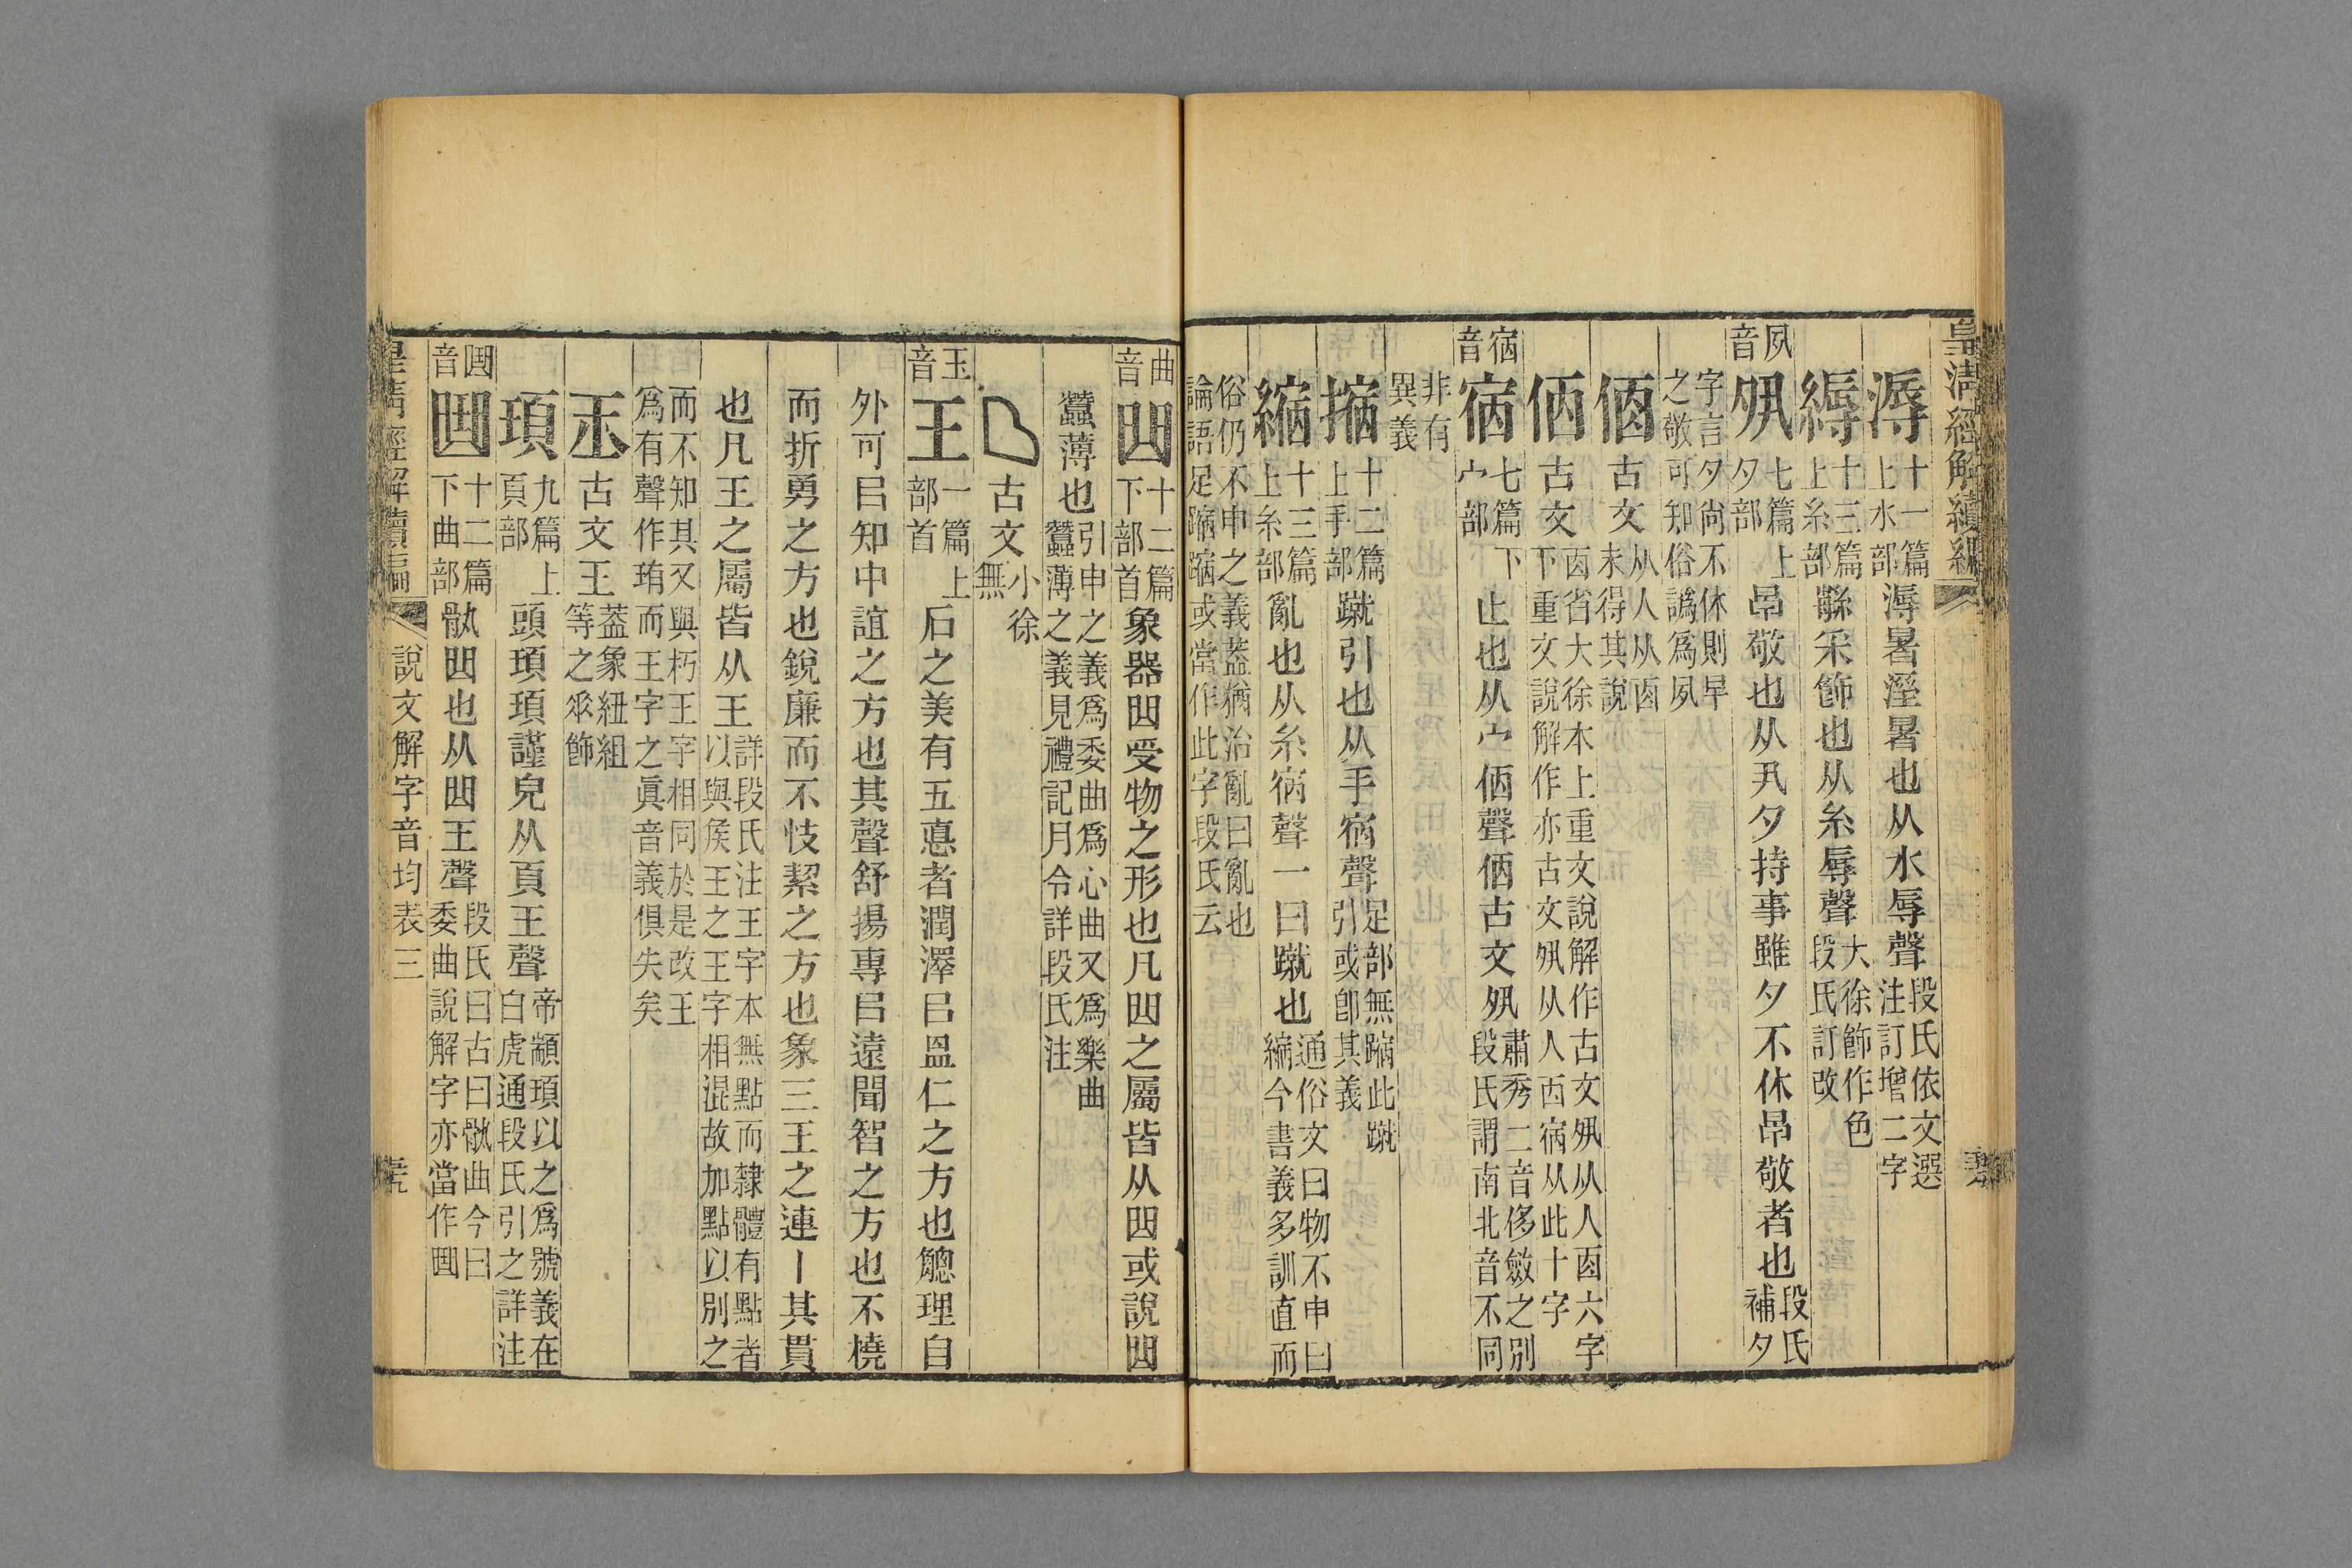 皇淸經解續編
溽十一篇上水部溽暑溼暑也从水辱聲段氏依文選注訂增二字
縟十三篇上糸部繇采飾也从糸辱聲大徐飾作色段氏訂改
夙音
㚈七篇上夕部早敬也从丮夕持事雖夕不休早敬者也段氏補夕
字言夕尙不休則早之敬可知俗譌爲夙
㑉古文从人从㐁未得其說
佰古文㐁省大徐本上重文說解作古文㚈从人㐁六字下重文說解作亦古文㚈从人西宿从此十字
宿音
宿七篇下宀部止也从宀佰聲佰古文㚈肅秀二音侈斂之別段氏謂南北音不同
非有異義
摍十二篇上手部蹴引也从手宿聲足部無蹜此蹴引或卽其義
縮十三篇上糸部亂也从糸宿聲一曰蹴也通俗文曰物不申曰縮今書義多訓直而
俗仍不申之義蓋猶治亂曰亂也論語足蹜蹜或當作此字段氏云
曲音
𠚖十二篇下部首象器曲受物之形也凡曲之屬皆从曲或說曲
蠶薄也引申之義爲委曲爲心曲又爲樂曲蠶薄之義見禮記月令詳段氏注
古文小徐無
玉音
王一篇上部首石之美有五悳者潤澤㠯溫仁之方也䚡理自
外可㠯知中誼之方也其聲舒揚專㠯遠聞智之方也不橈
而折勇之方也銳廉而不忮絜之方也象三王之連丨其貫
也凡王之屬皆从王詳段氏注王字本無點而隸體有點者以與矦王之王字相混故加點以別之
而不知其又與朽王字相同於是改王爲有聲作珛而王字之眞音義俱失矣
𤣪古文王蓋象紐組等之𠂹飾
頊九篇上頁部頭頊頊謹皃从頁王聲帝顓頊以之爲號義在白虎通段氏引之詳注
𠚖音
𠚖十二篇下曲部骫曲也从曲王聲段氏曰古曰骫曲今曰委曲說解字亦當作𠚖
皇淸經解續編
說文解字音均表三